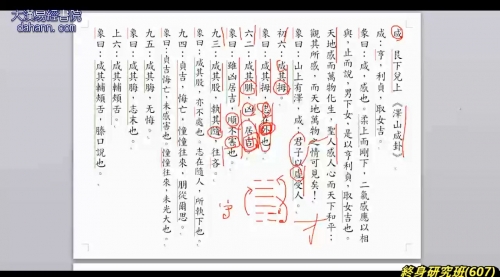 大漠易經書院
dahann.com
咸 艮下兌上 《澤山咸卦》
咸:亨,利貞,取女吉。
彖曰:咸,感也。柔上而剛下,二氣感應以相
與,止而說,男下女,是以亨利貞,取女吉也。
天地感而萬物化生,聖人感人心而天下和平;
觀其所感,而天地萬物之情可見矣!
象曰:山上有澤,咸;君子以虛受人。
初六:咸其拇。
象曰:咸其拇,志在外也。
六二:咸其腓,凶,居吉。
象曰:雖凶居吉,順不害也。
九三:咸其股,執其隨,往吝。
象曰:咸其股,亦不處也。志在隨人,所執下也。
九四:貞吉,悔亡,憧憧往來,朋從爾思。
象曰:貞吉悔亡,未感害也。憧憧往來,未光大也。
九五:咸其脢,无悔。
象曰:咸其脢,志末也。
上六:咸其輔頰舌。
象曰:咸其輔頰舌,滕口說也。
終身研究班(607)